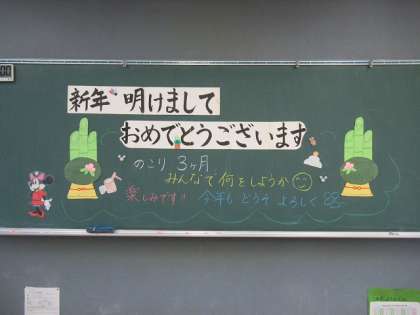 新年 明けまして
おめでとうございます
のこり 3ヶ月
みんなで何をしようか
楽しみです!! 今年も どうぞ よろしく